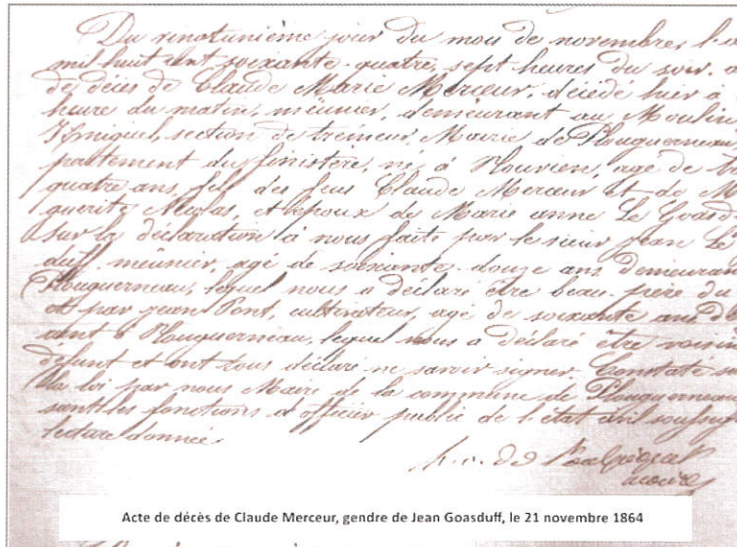 Du vingtunième jour du mois de novembre, l'a
mil huit cent soixante-quatre, sept heures du soir. a
de décès de Claude Marie Merceur, décédé hier à
heure du matin, meûnier, demeurant au Moulin
section de tremeur, Mairie de Plouguerneau,
partement du finistère, né à Plouvien, agé de
quatre ans, fils des feus Claude Merceur et de M
guerite Nicolas, et époux de Marie anne Le Goasd
Sur la déclaration à nous faite par le sieur jean Le
duff, meûnier, agé de soixante-douze ans demeuran
Plouguerneau, lequel nous a déclaré être beau-père du
et par jean Pont, cultivateur, agé de soixante ans de
ant à Plouguerneau, lequel nous a déclaré être voisin
défunt et ont tous déclaré ne savoir signer. Constaté
la loi par nous Maire de la commune de Plouguerneau
sant les fonctions d'officier public de l'état civil soussig
lecture donnée.
maire
Acte de décès de Claude Merceur, gendre de Jean Goasduff, le 21 novembre 1864